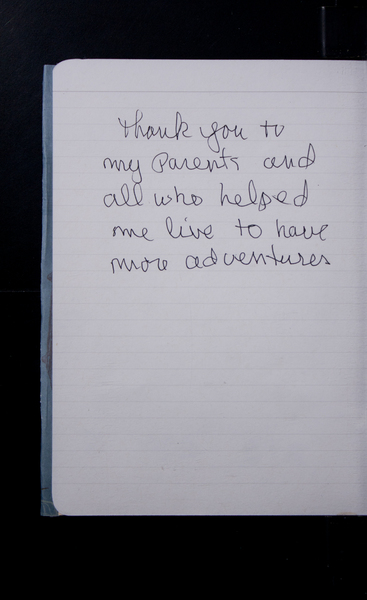 thank you to
my parents and
all who helped
me live to have
more adventures